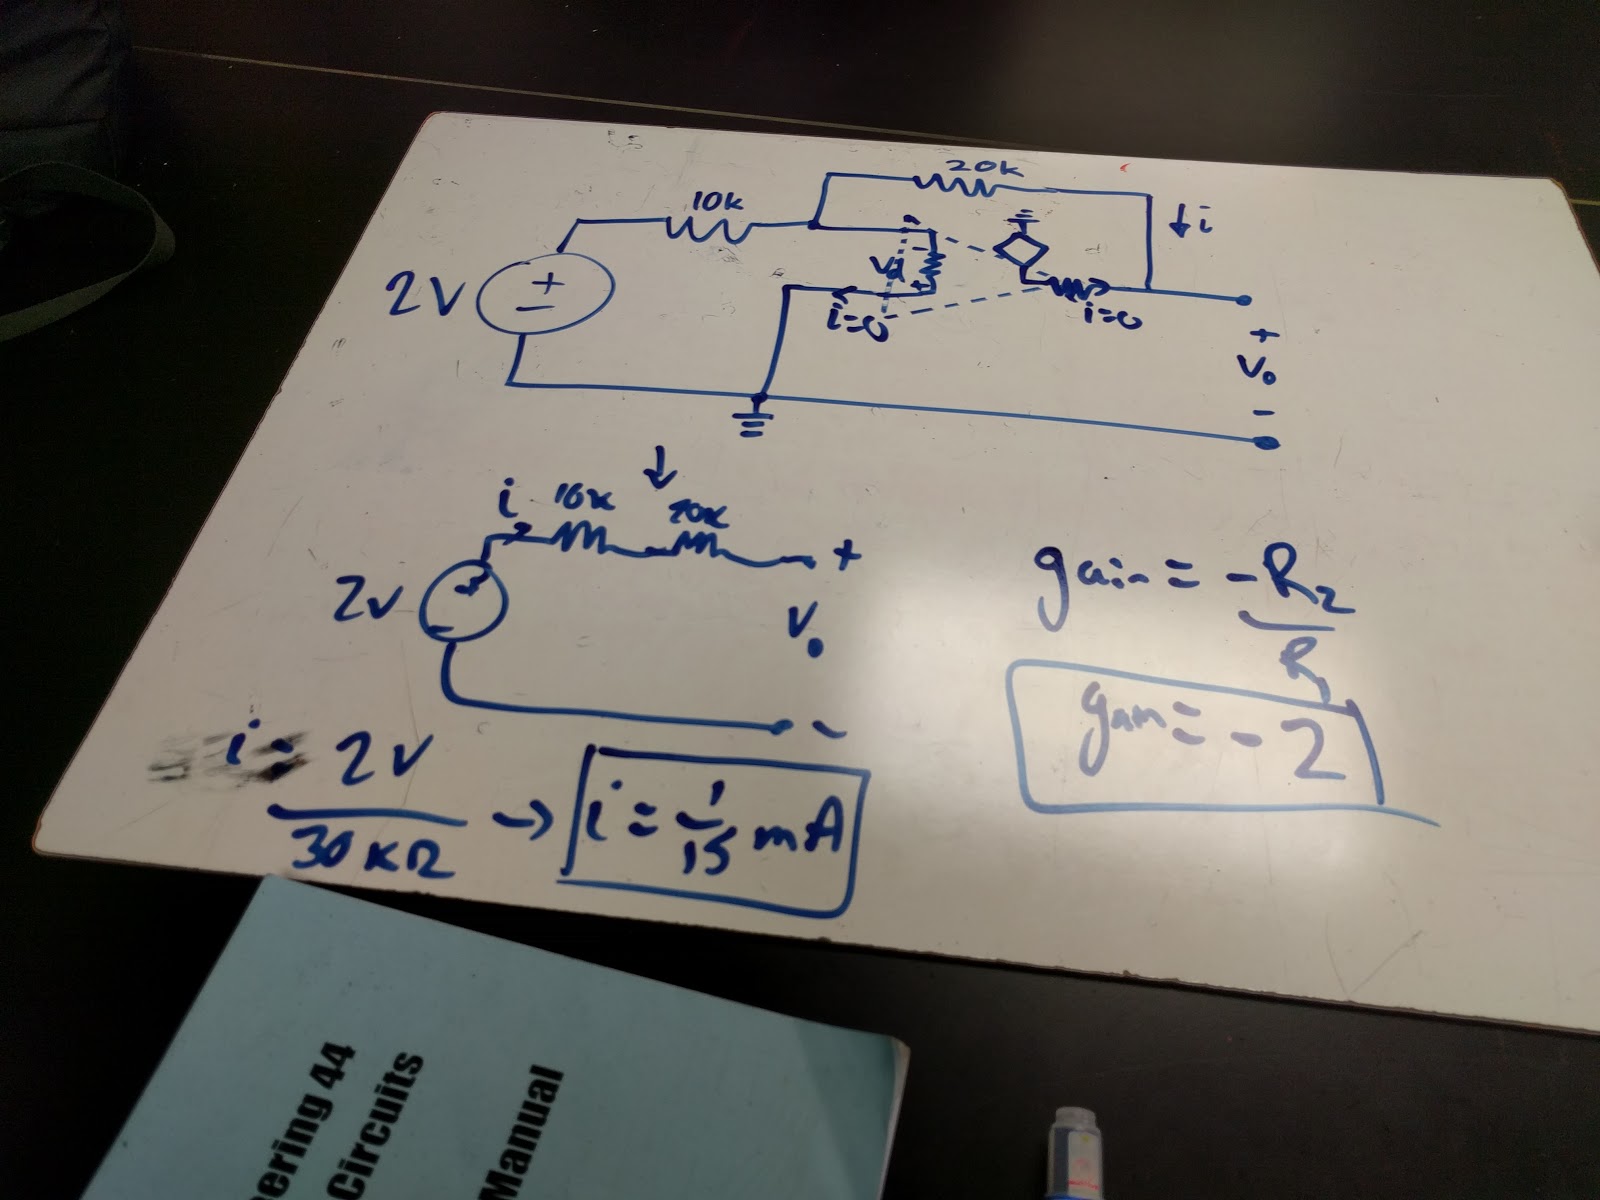 20k
10k
i
2V
Vd
+
i=0
i=0
+
-
+
Vo
-
i 10k 20k
+
2V
Vo
-
gain = -R2
R1
gain = -2
i = 2V
30KΩ
→ i = 1/15 mA
ering 44
Circuits
Manual